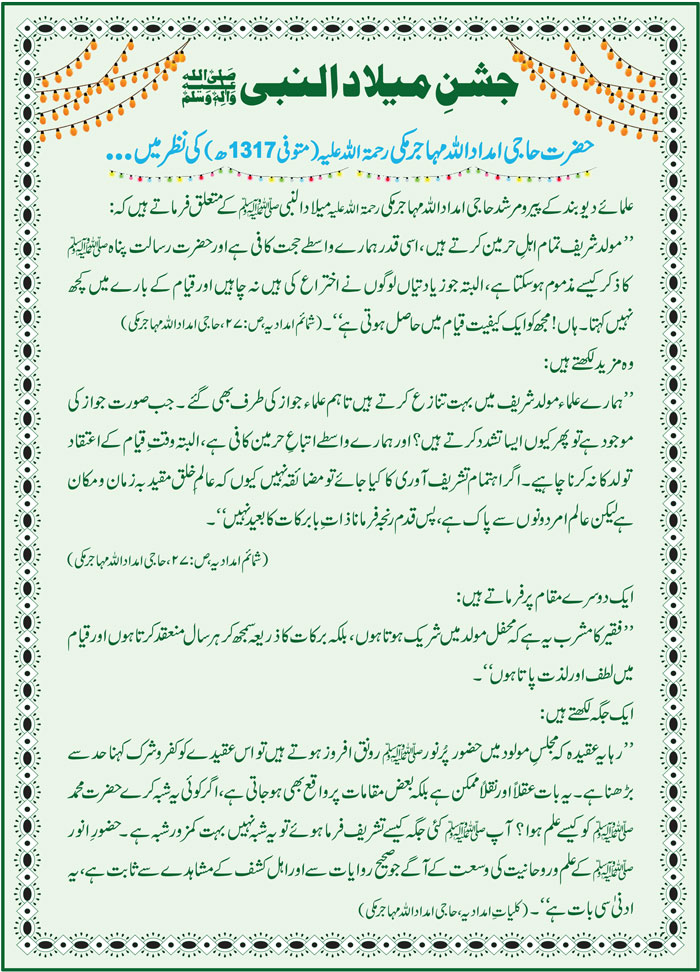 جشنِ میلاد النبی صَلَّی اللہُ عَلَیْہِ وَآلِہٖ وَسَلَّم
حضرت حاجی امداد اللہ مہاجر مکی رحمۃ اللہ علیہ (متوفی 1317ھ) کی نظر میں ...
علمائے دیوبند کے پیر و مرشد حاجی امداد اللہ مہاجر مکی رحمۃ اللہ علیہ میلاد النبی ﷺ کے متعلق فرماتے ہیں کہ:
’’مولد شریف تمام اہلِ حرمین کرتے ہیں، اسی قدر ہمارے واسطے حجت کافی ہے اور حضرت رسالت پناہ ﷺ
کا ذکر کیسے مذموم ہو سکتا ہے، البتہ جو زیادتیاں لوگوں نے اختراع کی ہیں نہ چاہیں اور قیام کے بارے میں کچھ
نہیں کہتا۔ ہاں! مجھ کو ایک کیفیت قیام میں حاصل ہوتی ہے‘‘۔ (شمائم امدادیہ، ص: ۲۷، حاجی امداد اللہ مہاجر مکی)
وہ مزید لکھتے ہیں:
’’ہمارے علماء مولد شریف میں بہت تنازع کرتے ہیں تاہم علماء جواز کی طرف بھی گئے ۔ جب صورت جواز کی
موجود ہے تو پھر کیوں ایسا تشدد کرتے ہیں؟ اور ہمارے واسطے اتباعِ حرمین کافی ہے، البتہ وقتِ قیام کے اعتقاد
تولد کا نہ کرنا چاہیے۔ اگر اہتمام تشریف آوری کا کیا جائے تو مضائقہ نہیں کیوں کہ عالمِ خلق مقید بہ زمان و مکان
ہے لیکن عالم امر دونوں سے پاک ہے، پس قدم رنجہ فرمانا ذاتِ بابرکات کا بعید نہیں‘‘۔
(شمائم امدادیہ، ص: ۲۷، حاجی امداد اللہ مہاجر مکی)
ایک دوسرے مقام پر فرماتے ہیں:
’’فقیر کا مشرب یہ ہے کہ محفل مولد میں شریک ہوتا ہوں، بلکہ برکات کا ذریعہ سمجھ کر ہر سال منعقد کرتا ہوں اور قیام
میں لطف اور لذت پاتا ہوں‘‘۔
ایک جگہ لکھتے ہیں:
’’رہا یہ عقیدہ کہ مجلسِ مولود میں حضور پُر نور ﷺ رونق افروز ہوتے ہیں تو اس عقیدے کو کفر و شرک کہنا حد سے
بڑھنا ہے۔ یہ بات عقلاً اور نقلاً ممکن ہے بلکہ بعض مقامات پر واقع بھی ہو جاتی ہے، اگر کوئی یہ شبہ کرے حضرت محمد
ﷺ کو کیسے علم ہوا؟ آپ ﷺ کئی جگہ کیسے تشریف فرما ہوئے تو یہ شبہ نہیں بہت کمزور شبہ ہے۔ حضورِ انور
ﷺ کے علم و روحانیت کی وسعت کے آگے جو صحیح روایات سے اور اہل کشف کے مشاہدے سے ثابت ہے، یہ
ادنیٰ سی بات ہے‘‘۔ (کلیاتِ امدادیہ، حاجی امداد اللہ مہاجر مکی)